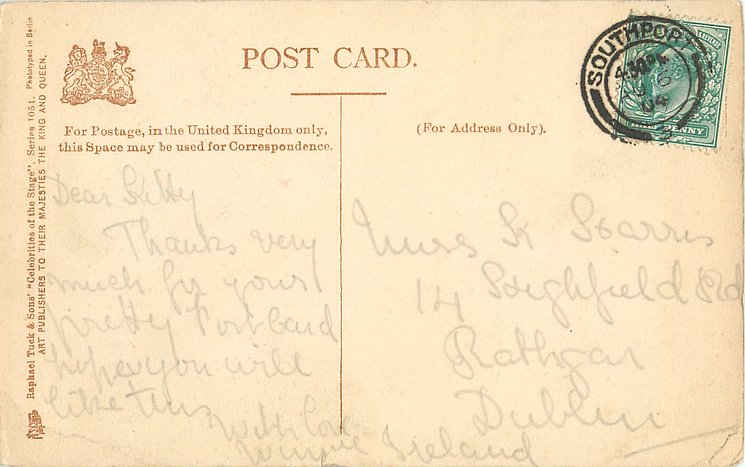 POST CARD.
For Postage, in the United Kingdom only,
this Space may be used for Correspondence.
(For Address Only).
SOUTHPOR
4.30PM
6
04
PENNY
Raphael Tuck & Sons' "Celebrities of the Stage". Series 1051. Phototyped in Berlin
ART PUBLISHERS TO THEIR MAJESTIES THE KING AND QUEEN.
Dear Kitty
Thanks very
much for your
pretty Postcard
hope you will
like this
With love
Winnie
Miss K Harris
14 Highfield Rd
Rathgar
Dublin
Ireland